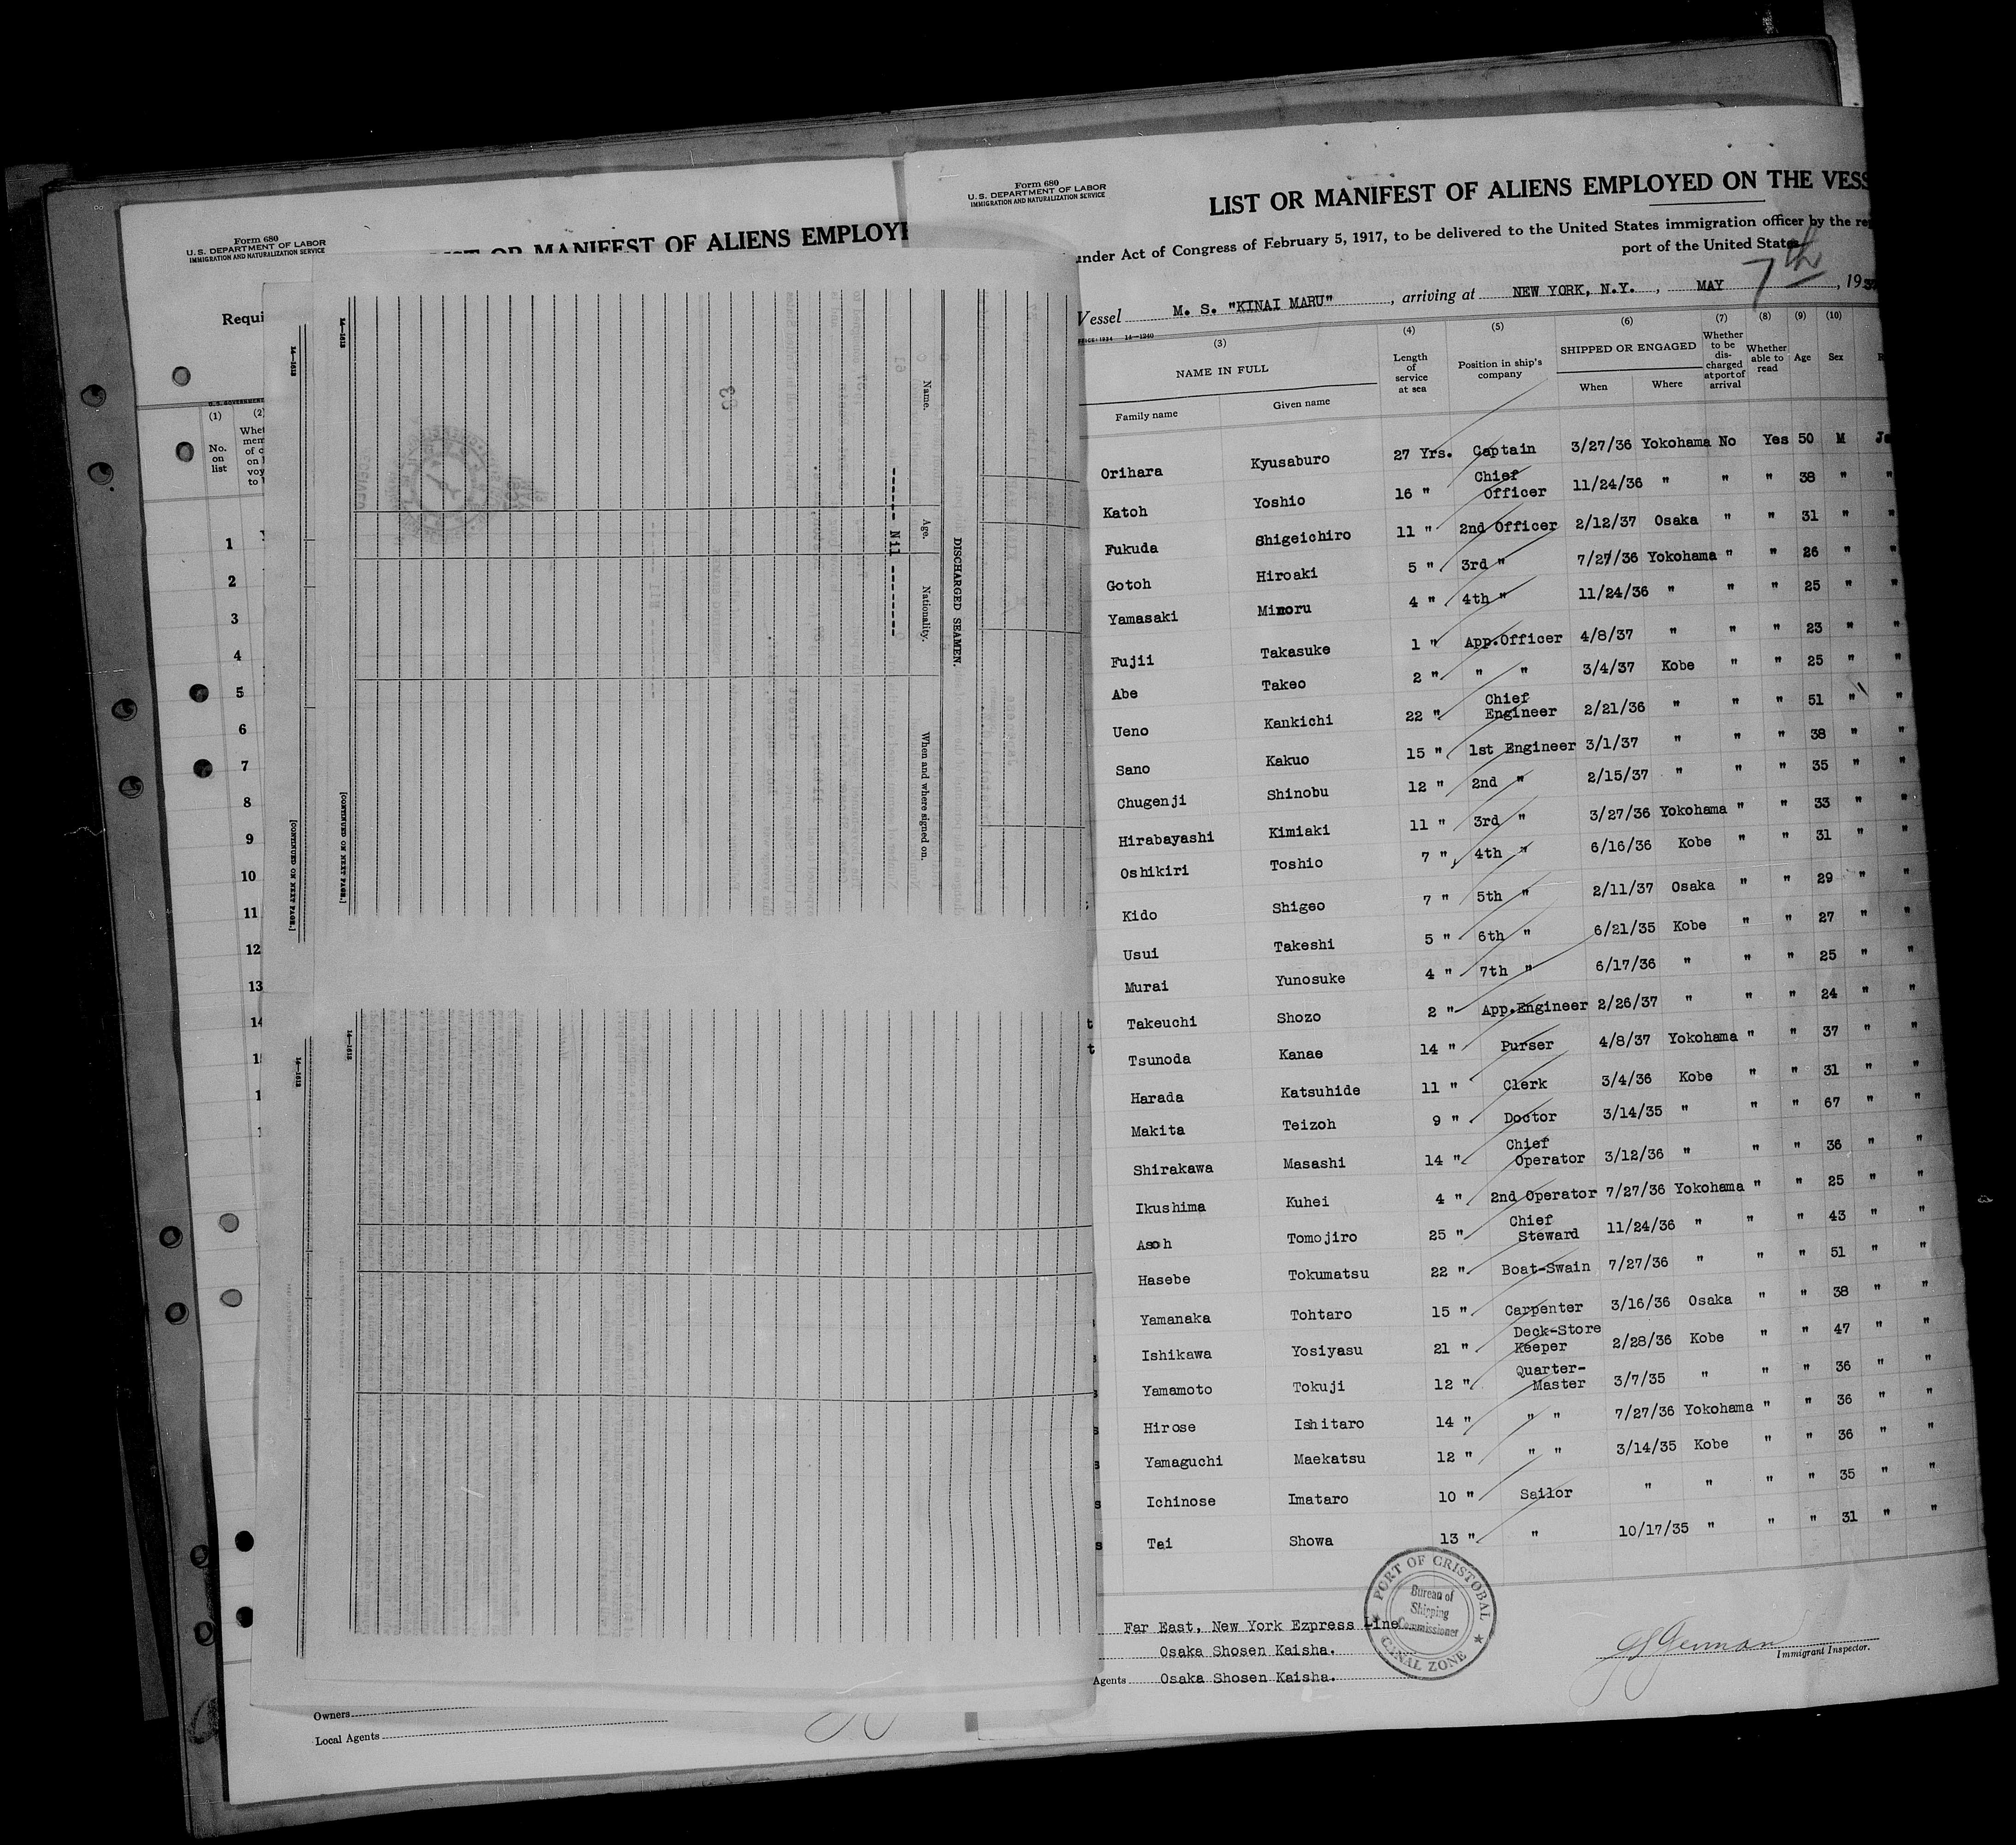 Form 680
U.S. DEPARTMENT OF LABOR
IMMIGRATION AND NATURALIZATION SERVICE
OR MANIFEST OF ALIENS EMPLOY
Requi
(1)
(2)
No.
on
list
1
2
3
4
5
6
7
8
9
10
11
12
13
14
14—1613
[CONTINUED ON NEXT PAGE.]
14—1613
[CONTINUED ON NEXT PAGE.]
DISCHARGED SEAMEN.
Name. Age. Nationality. When and where signed on.
Nil
14—1613
14—1613
Owners
Local Agents
Form 680
U.S. DEPARTMENT OF LABOR
IMMIGRATION AND NATURALIZATION SERVICE
LIST OR MANIFEST OF ALIENS EMPLOYED ON THE VESS
under Act of Congress of February 5, 1917, to be delivered to the United States immigration officer by the re
port of the United States
Vessel M. S. "KINAI MARU", arriving at NEW YORK, N.Y., MAY 7th, 193
14—1240
(3) (4) (5) (6) (7) (8) (9) (10)
NAME IN FULL
Family name Given name
Length of service at sea
Position in ship's company
SHIPPED OR ENGAGED
When Where
Whether to be discharged at port of arrival
Whether able to read
Age
Sex
Orihara Kyusaburo 27 Yrs. Captain 3/27/36 Yokohama No Yes 50 M Ja
Katoh Yoshio 16 " Chief Officer 11/24/36 " " " 38 " "
Fukuda Shigeichiro 11 " 2nd Officer 2/12/37 Osaka " " 31 " "
Gotoh Hiroaki 5 " 3rd " 7/27/36 Yokohama " " 26 " "
Yamasaki Minoru 4 " 4th " 11/24/36 " " " 25 " "
Fujii Takasuke 1 " App.Officer 4/8/37 " " " 23 " "
Abe Takeo 2 " " " 3/4/37 Kobe " " 25 " "
Ueno Kankichi 22 " Chief Engineer 2/21/36 " " " 51 " "
Sano Kakuo 15 " 1st Engineer 3/1/37 " " " 38 " "
Chugenji Shinobu 12 " 2nd " 2/15/37 " " " 35 " "
Hirabayashi Kimiaki 11 " 3rd " 3/27/36 Yokohama " " 33 " "
Oshikiri Toshio 7 " 4th " 6/16/36 Kobe " " 31 " "
Kido Shigeo 7 " 5th " 2/11/37 Osaka " " 29 " "
Usui Takeshi 5 " 6th " 6/21/35 Kobe " " 27 " "
Murai Yunosuke 4 " 7th " 6/17/36 " " " 25 " "
Takeuchi Shozo 2 " App.Engineer 2/26/37 " " " 24 " "
Tsunoda Kanae 14 " Purser 4/8/37 Yokohama " " 37 " "
Harada Katsuhide 11 " Clerk 3/4/36 Kobe " " 31 " "
Makita Teizoh 9 " Doctor 3/14/35 " " " 67 " "
Shirakawa Masashi 14 " Chief Operator 3/12/36 " " " 36 " "
Ikushima Kuhei 4 " 2nd Operator 7/27/36 Yokohama " " 25 " "
Asoh Tomojiro 25 " Chief Steward 11/24/36 " " " 43 " "
Hasebe Tokumatsu 22 " Boat-Swain 7/27/36 " " " 51 " "
Yamanaka Tohtaro 15 " Carpenter 3/16/36 Osaka " " 38 " "
Ishikawa Yosiyasu 21 " Deck-Store Keeper 2/28/36 Kobe " " 47 " "
Yamamoto Tokuji 12 " Quarter-Master 3/7/35 " " " 36 " "
Hirose Ishitaro 14 " " " 7/27/36 Yokohama " " 36 " "
Yamaguchi Maekatsu 12 " " " 3/14/35 Kobe " " 36 " "
Ichinose Imataro 10 " Sailor " " " " 35 " "
Tai Showa 13 " " 10/17/35 " " " 31 " "
Far East, New York Ezpress Line
Osaka Shosen Kaisha.
Agents Osaka Shosen Kaisha.
PORT OF CRISTOBAL
Bureau of
Shipping
Commissioner
CANAL ZONE
Immigrant Inspector.